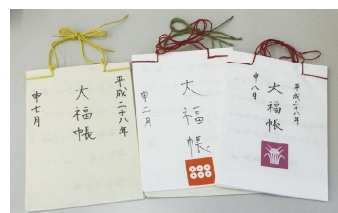 平成二十八年
大福帳
申七月
大福帳
申二月
平成二十八年
大福帳
申八月